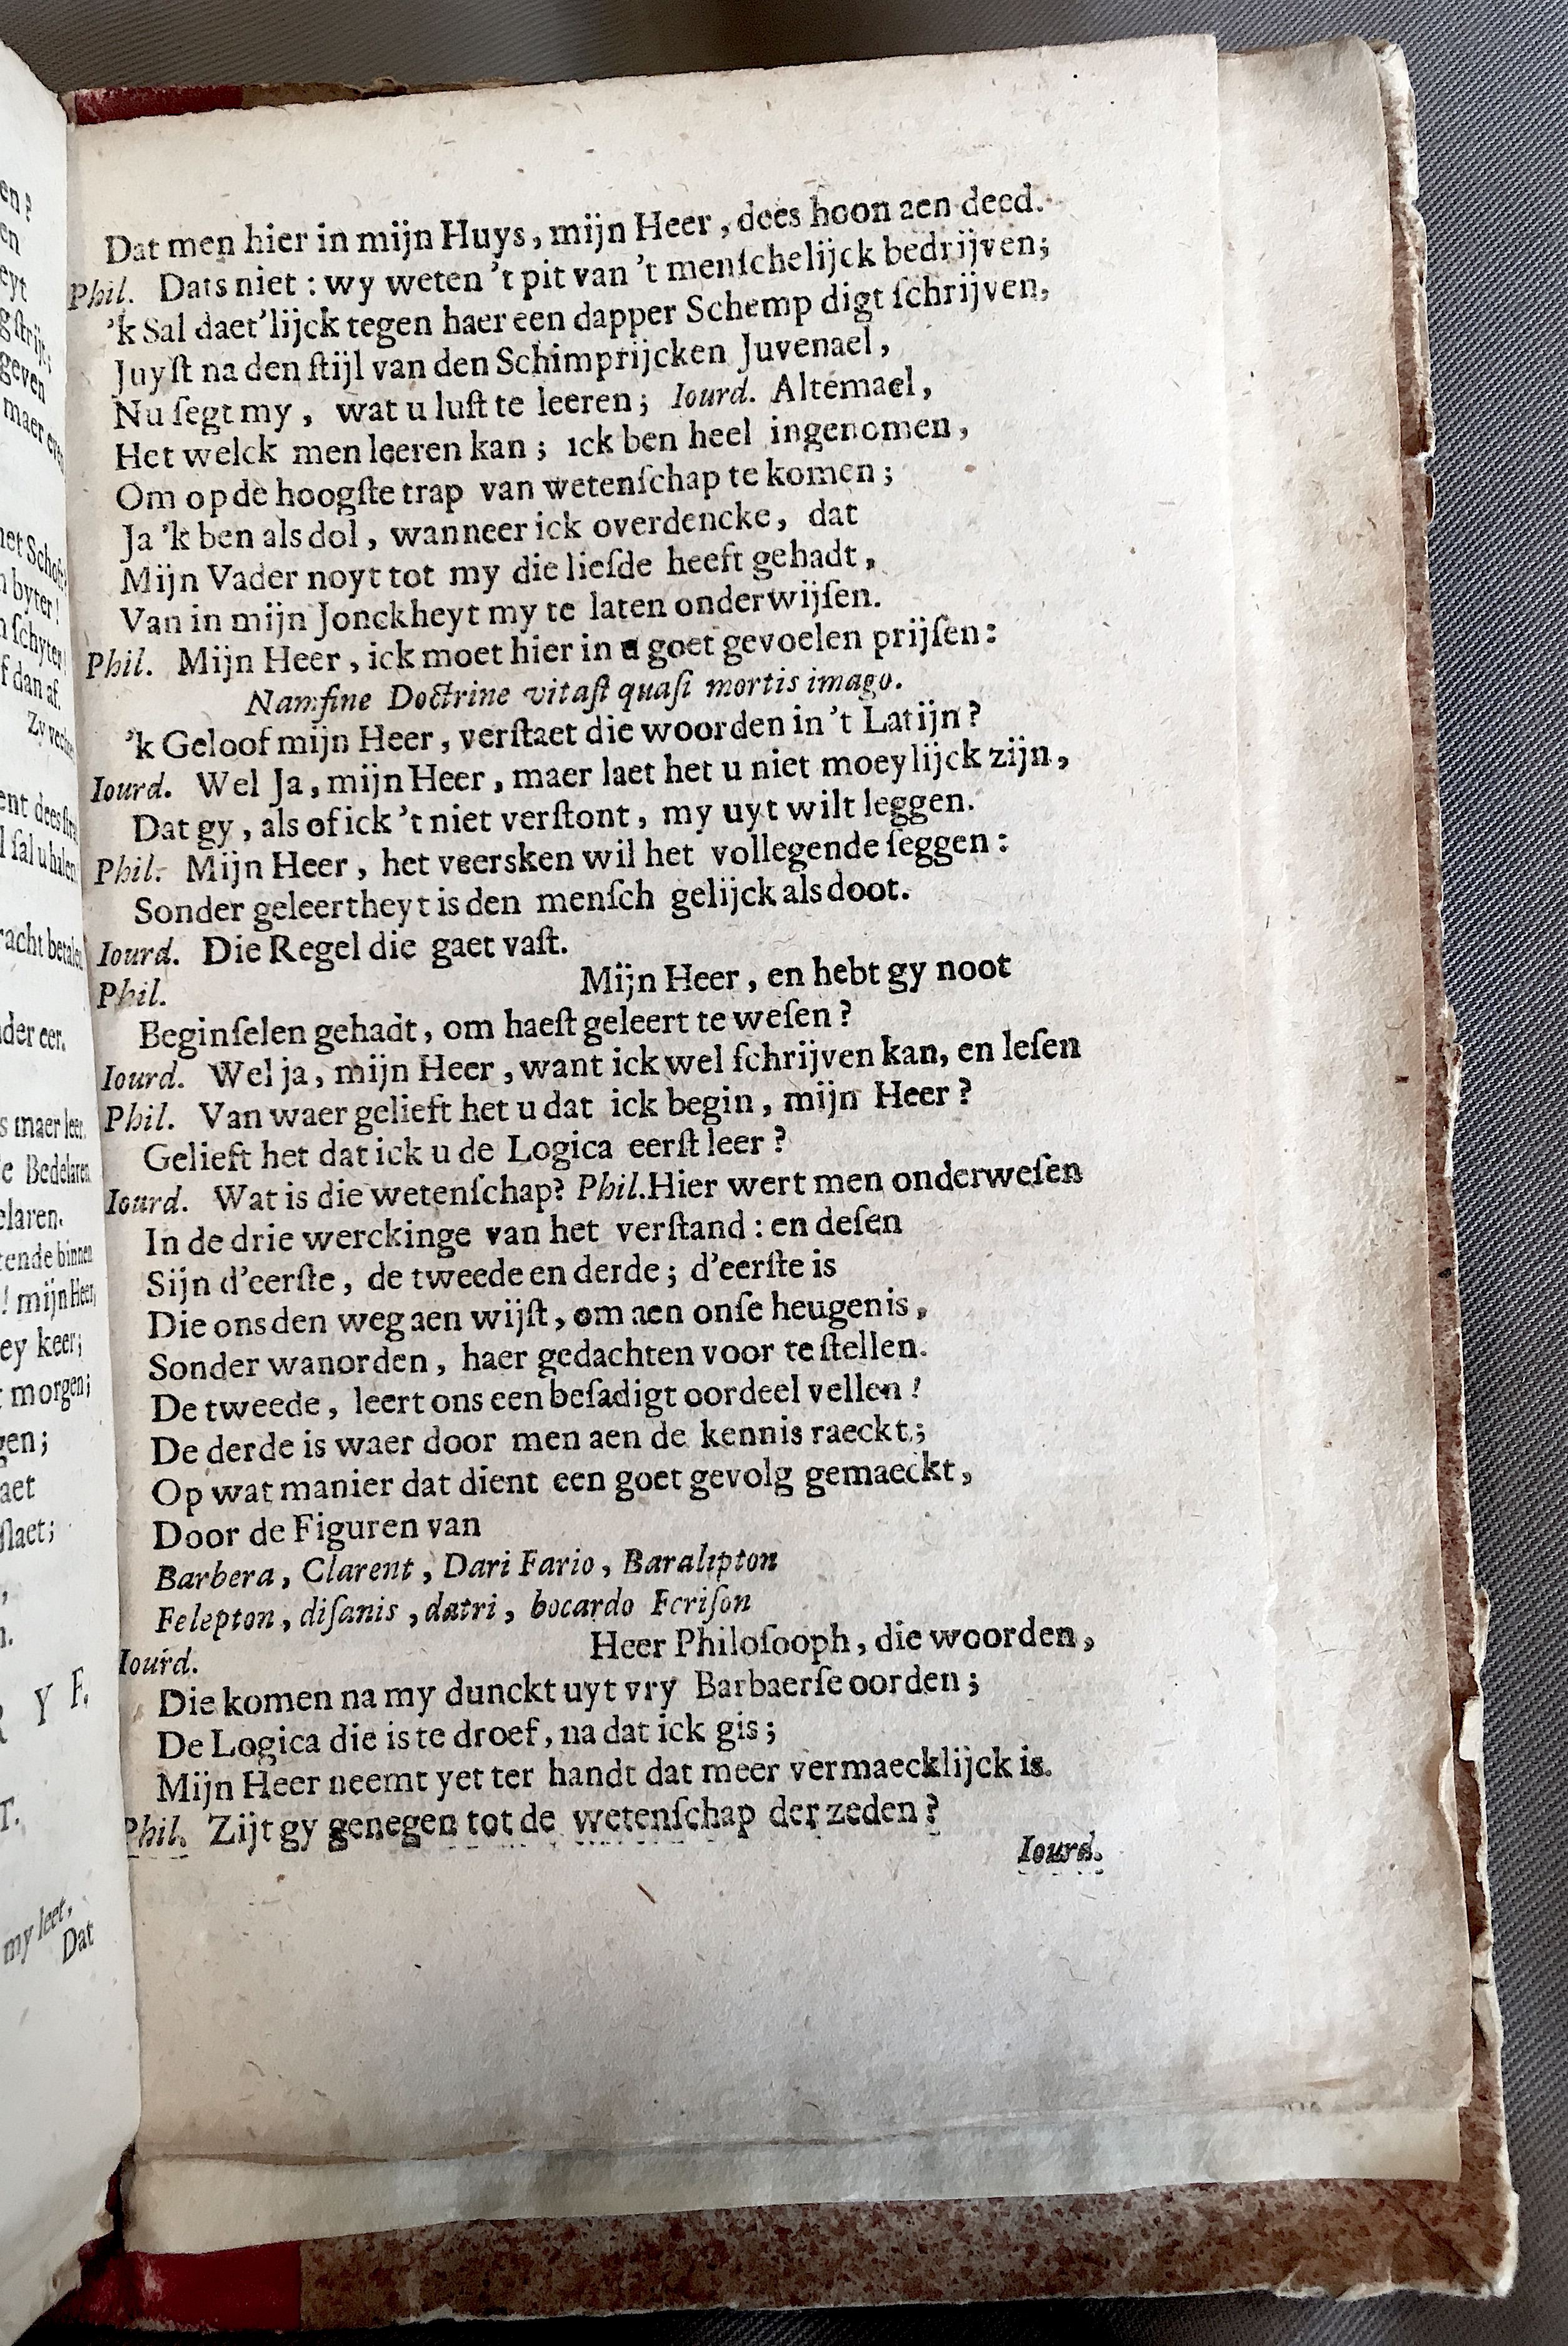 Dat men hier in mijn Huys, mijn Heer, dees hoon aen deed.
Phil. Dats niet : wy weten 't pit van 't menſchelijck bedrijven;
'k Sal daet'lijck tegen haer een dapper Schemp digt ſchrijven,
Juyſt na den ſtijl van den Schimprijcken Juvenael,
Nu ſegt my, wat u luſt te leeren; Iourd. Altemael,
Het welck men leeren kan; ick ben heel ingenomen,
Om op de hoogſte trap van wetenſchap te komen;
Ja 'k ben als dol, wanneer ick overdencke, dat
Mijn Vader noyt tot my die lieſde heeft gehadt,
Van in mijn Jonckheyt my te laten onderwijſen.
Phil. Mijn Heer, ick moet hier in u goet gevoelen prijſen:
Namſine Doctrine vitaſt quaſi mortis imago.
'k Geloof mijn Heer, verſtaet die woorden in 't Latijn?
Iourd. Wel Ja, mijn Heer, maer laet het u niet moeylijck zijn,
Dat gy, als of ick 't niet verſtont, my uyt wilt leggen.
Phil. Mijn Heer, het veersken wil het vollegende ſeggen:
Sonder geleertheyt is den menſch gelijck als doot.
Iourd. Die Regel die gaet vaſt.
Phil. Mijn Heer, en hebt gy noot
Beginſelen gehadt, om haeſt geleert te weſen?
Iourd. Wel ja, mijn Heer, want ick wel ſchrijven kan, en leſen
Phil. Van waer gelieft het u dat ick begin, mijn Heer?
Gelieft het dat ick u de Logica eerſt leer?
Iourd. Wat is die wetenſchap? Phil. Hier wert men onderweſen
In de drie werckinge van het verſtand : en deſen
Sijn d'eerſte, de tweede en derde; d'eerſte is
Die ons den weg aen wijſt, om aen onſe heugenis,
Sonder wanorden, haer gedachten voor te ſtellen.
De tweede, leert ons een beſadigt oordeel vellen!
De derde is waer door men aen de kennis raeckt;
Op wat manier dat dient een goet gevolg gemaeckt,
Door de Figuren van
Barbera, Clarent, Dari Fario, Baralipton
Felepton, diſanis, datri, bocardo Feriſon
Iourd. Heer Philoſooph, die woorden,
Die komen na my dunckt uyt vry Barbaerſe oorden;
De Logica die is te droef, na dat ick gis;
Mijn Heer neemt yet ter handt dat meer vermaecklijck is.
Phil. Zijt gy genegen tot de wetenſchap der zeden?
Iourd.